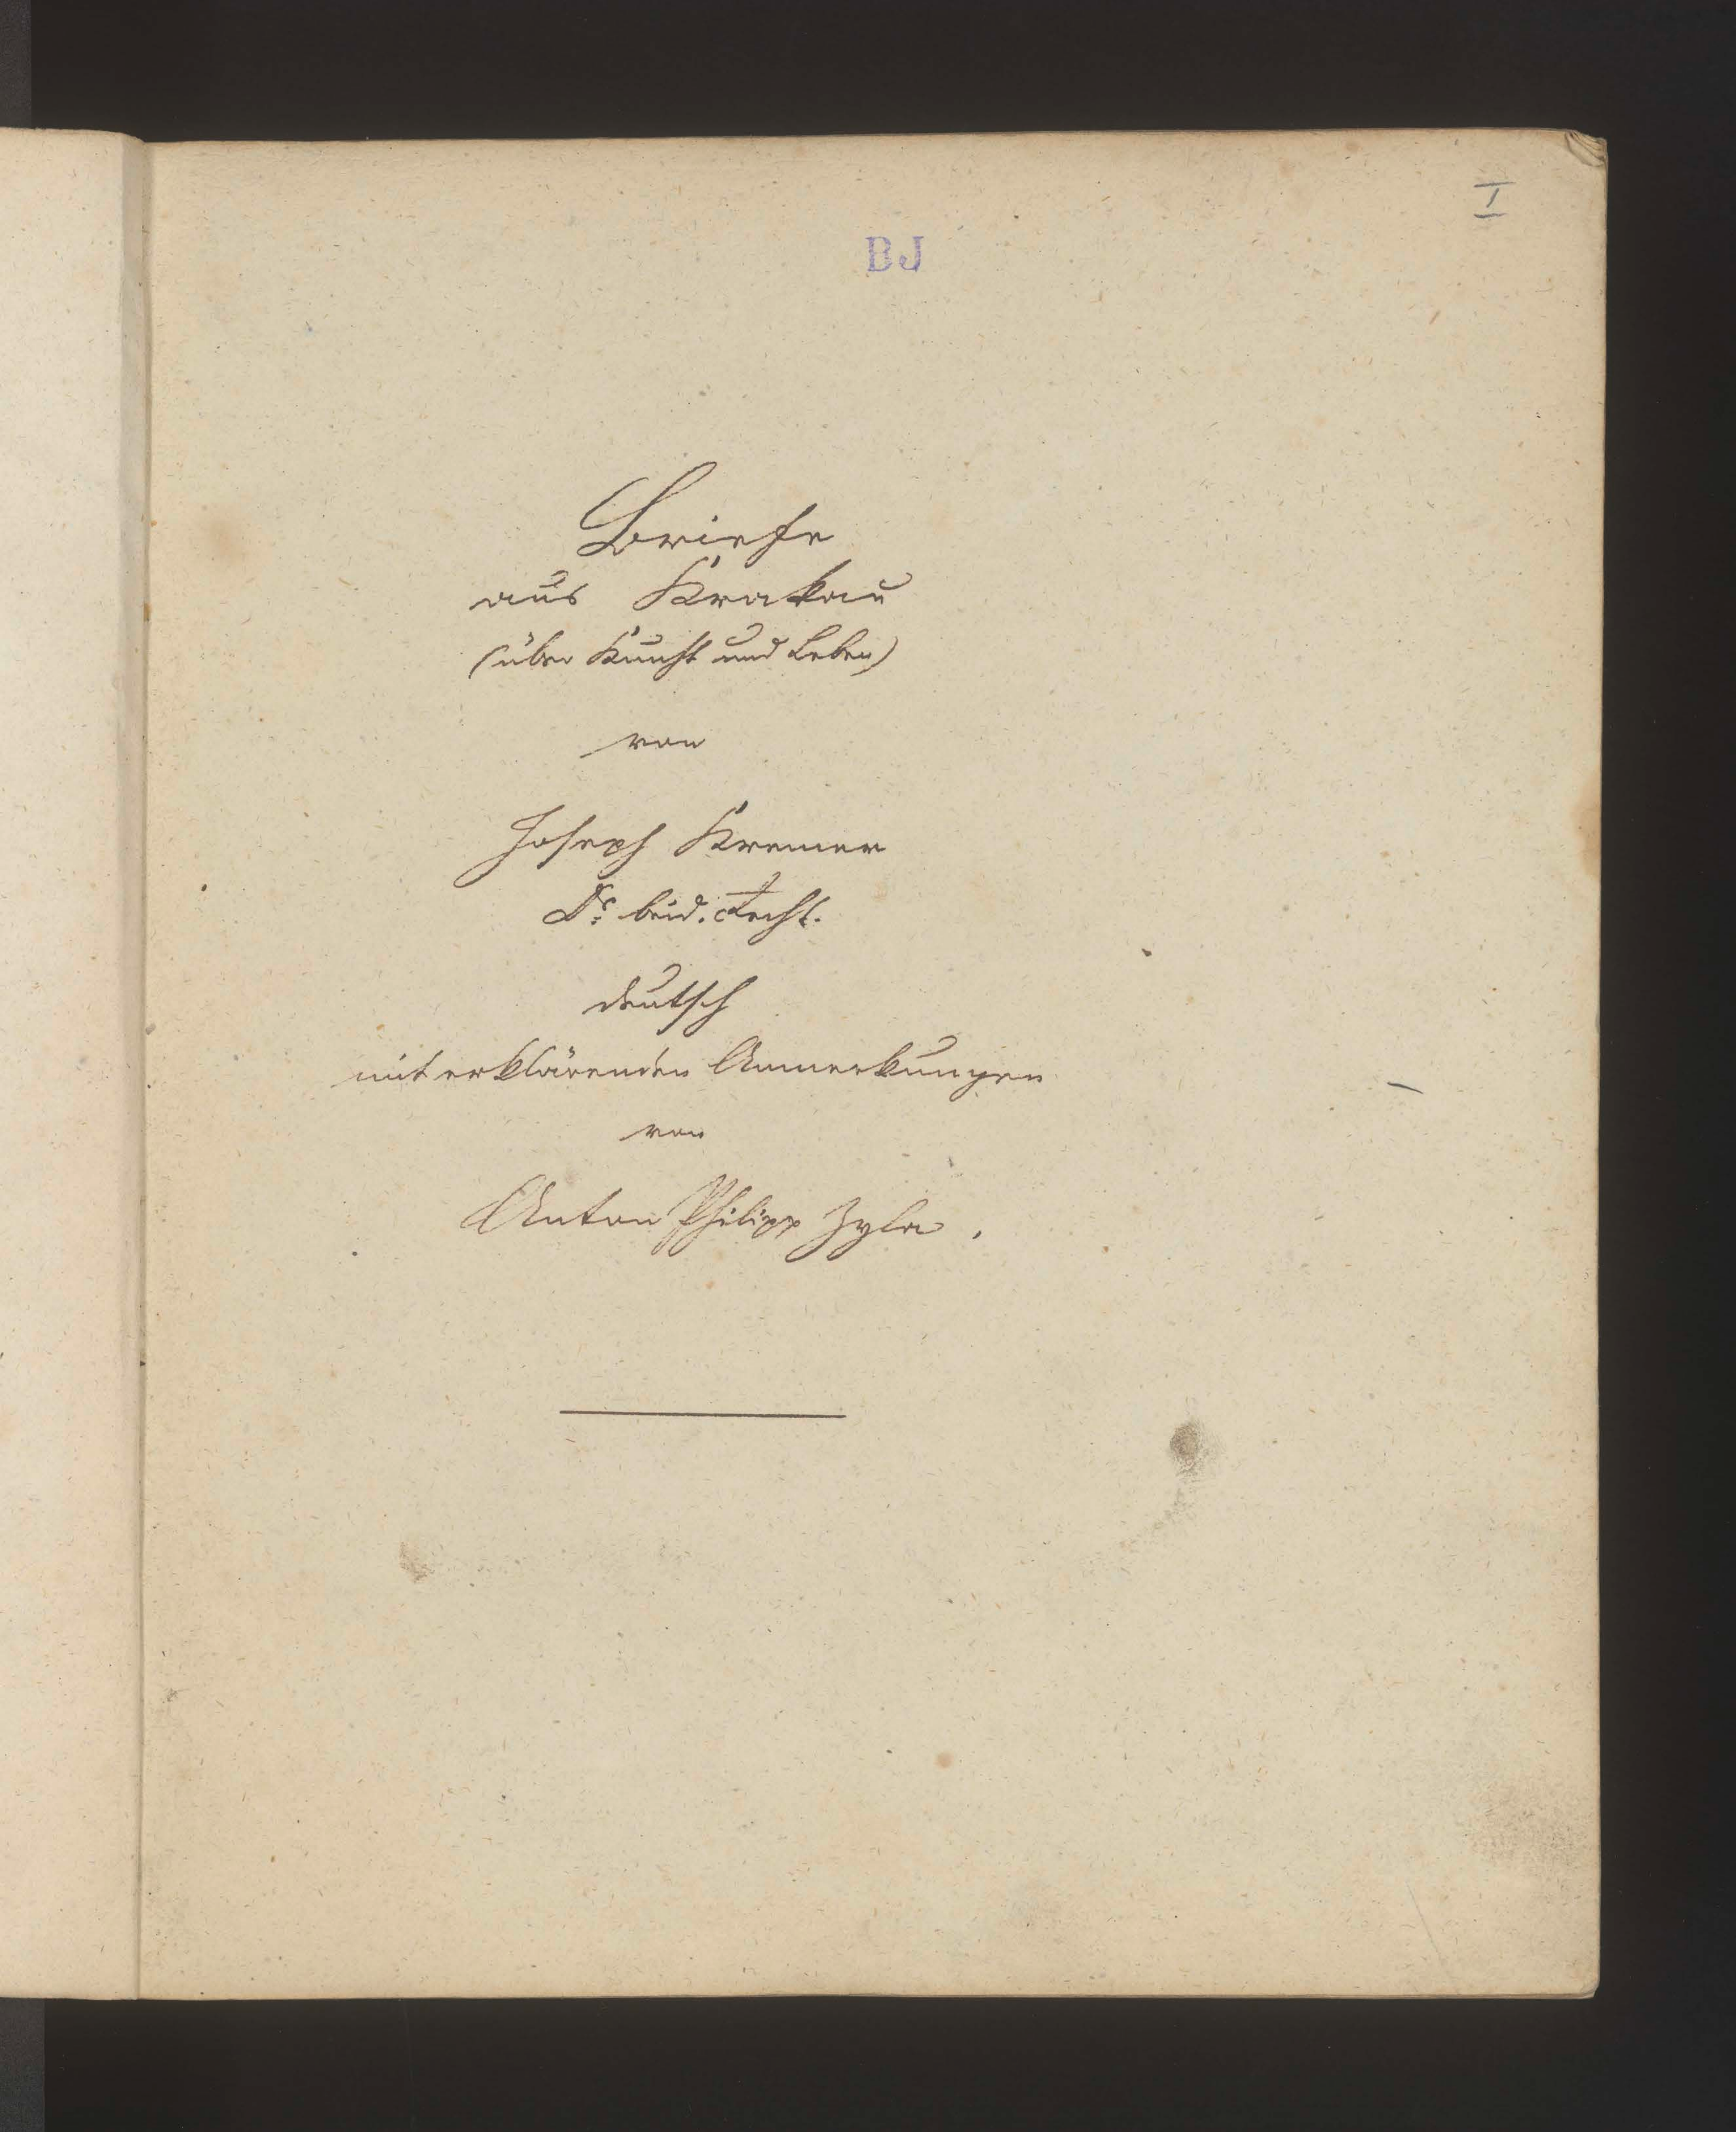 I
BJ
Briefe
aus Krakau
(über Kunst und Leben)
von
Joseph Kremer
Dr. beid. Recht.
deutsch
mit erklärenden Anmerkungen
von
Anton Philipp Zyla.